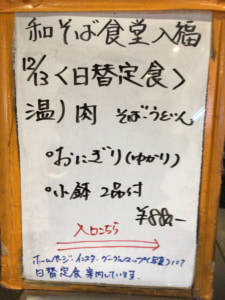 和そば食堂入福
12/13〈日替定食〉
温)肉 そば・うどん
・おにぎり(ゆかり)
・小鉢 2品付
¥880-
入口こちら
ホームページ・インスタ・グーグルマップ
日替定食 案内しています。